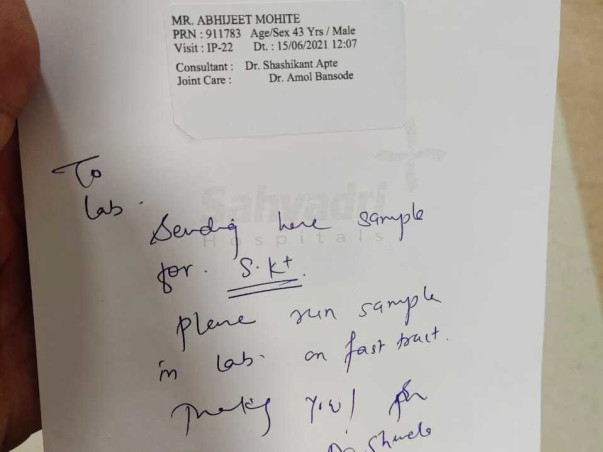 MR. ABHIJEET MOHITE
PRN : 911783 Age/Sex 43 Yrs / Male
Visit : IP-22 Dt. : 15/06/2021 12:07
Consultant : Dr. Shashikant Apte
Joint Care : Dr. Amol Bansode
To
Lab.
Sahyadri
Hospitals
Sending here sample
for. S.K+.
please run sample
in lab. on fast tract.
Thanking you!